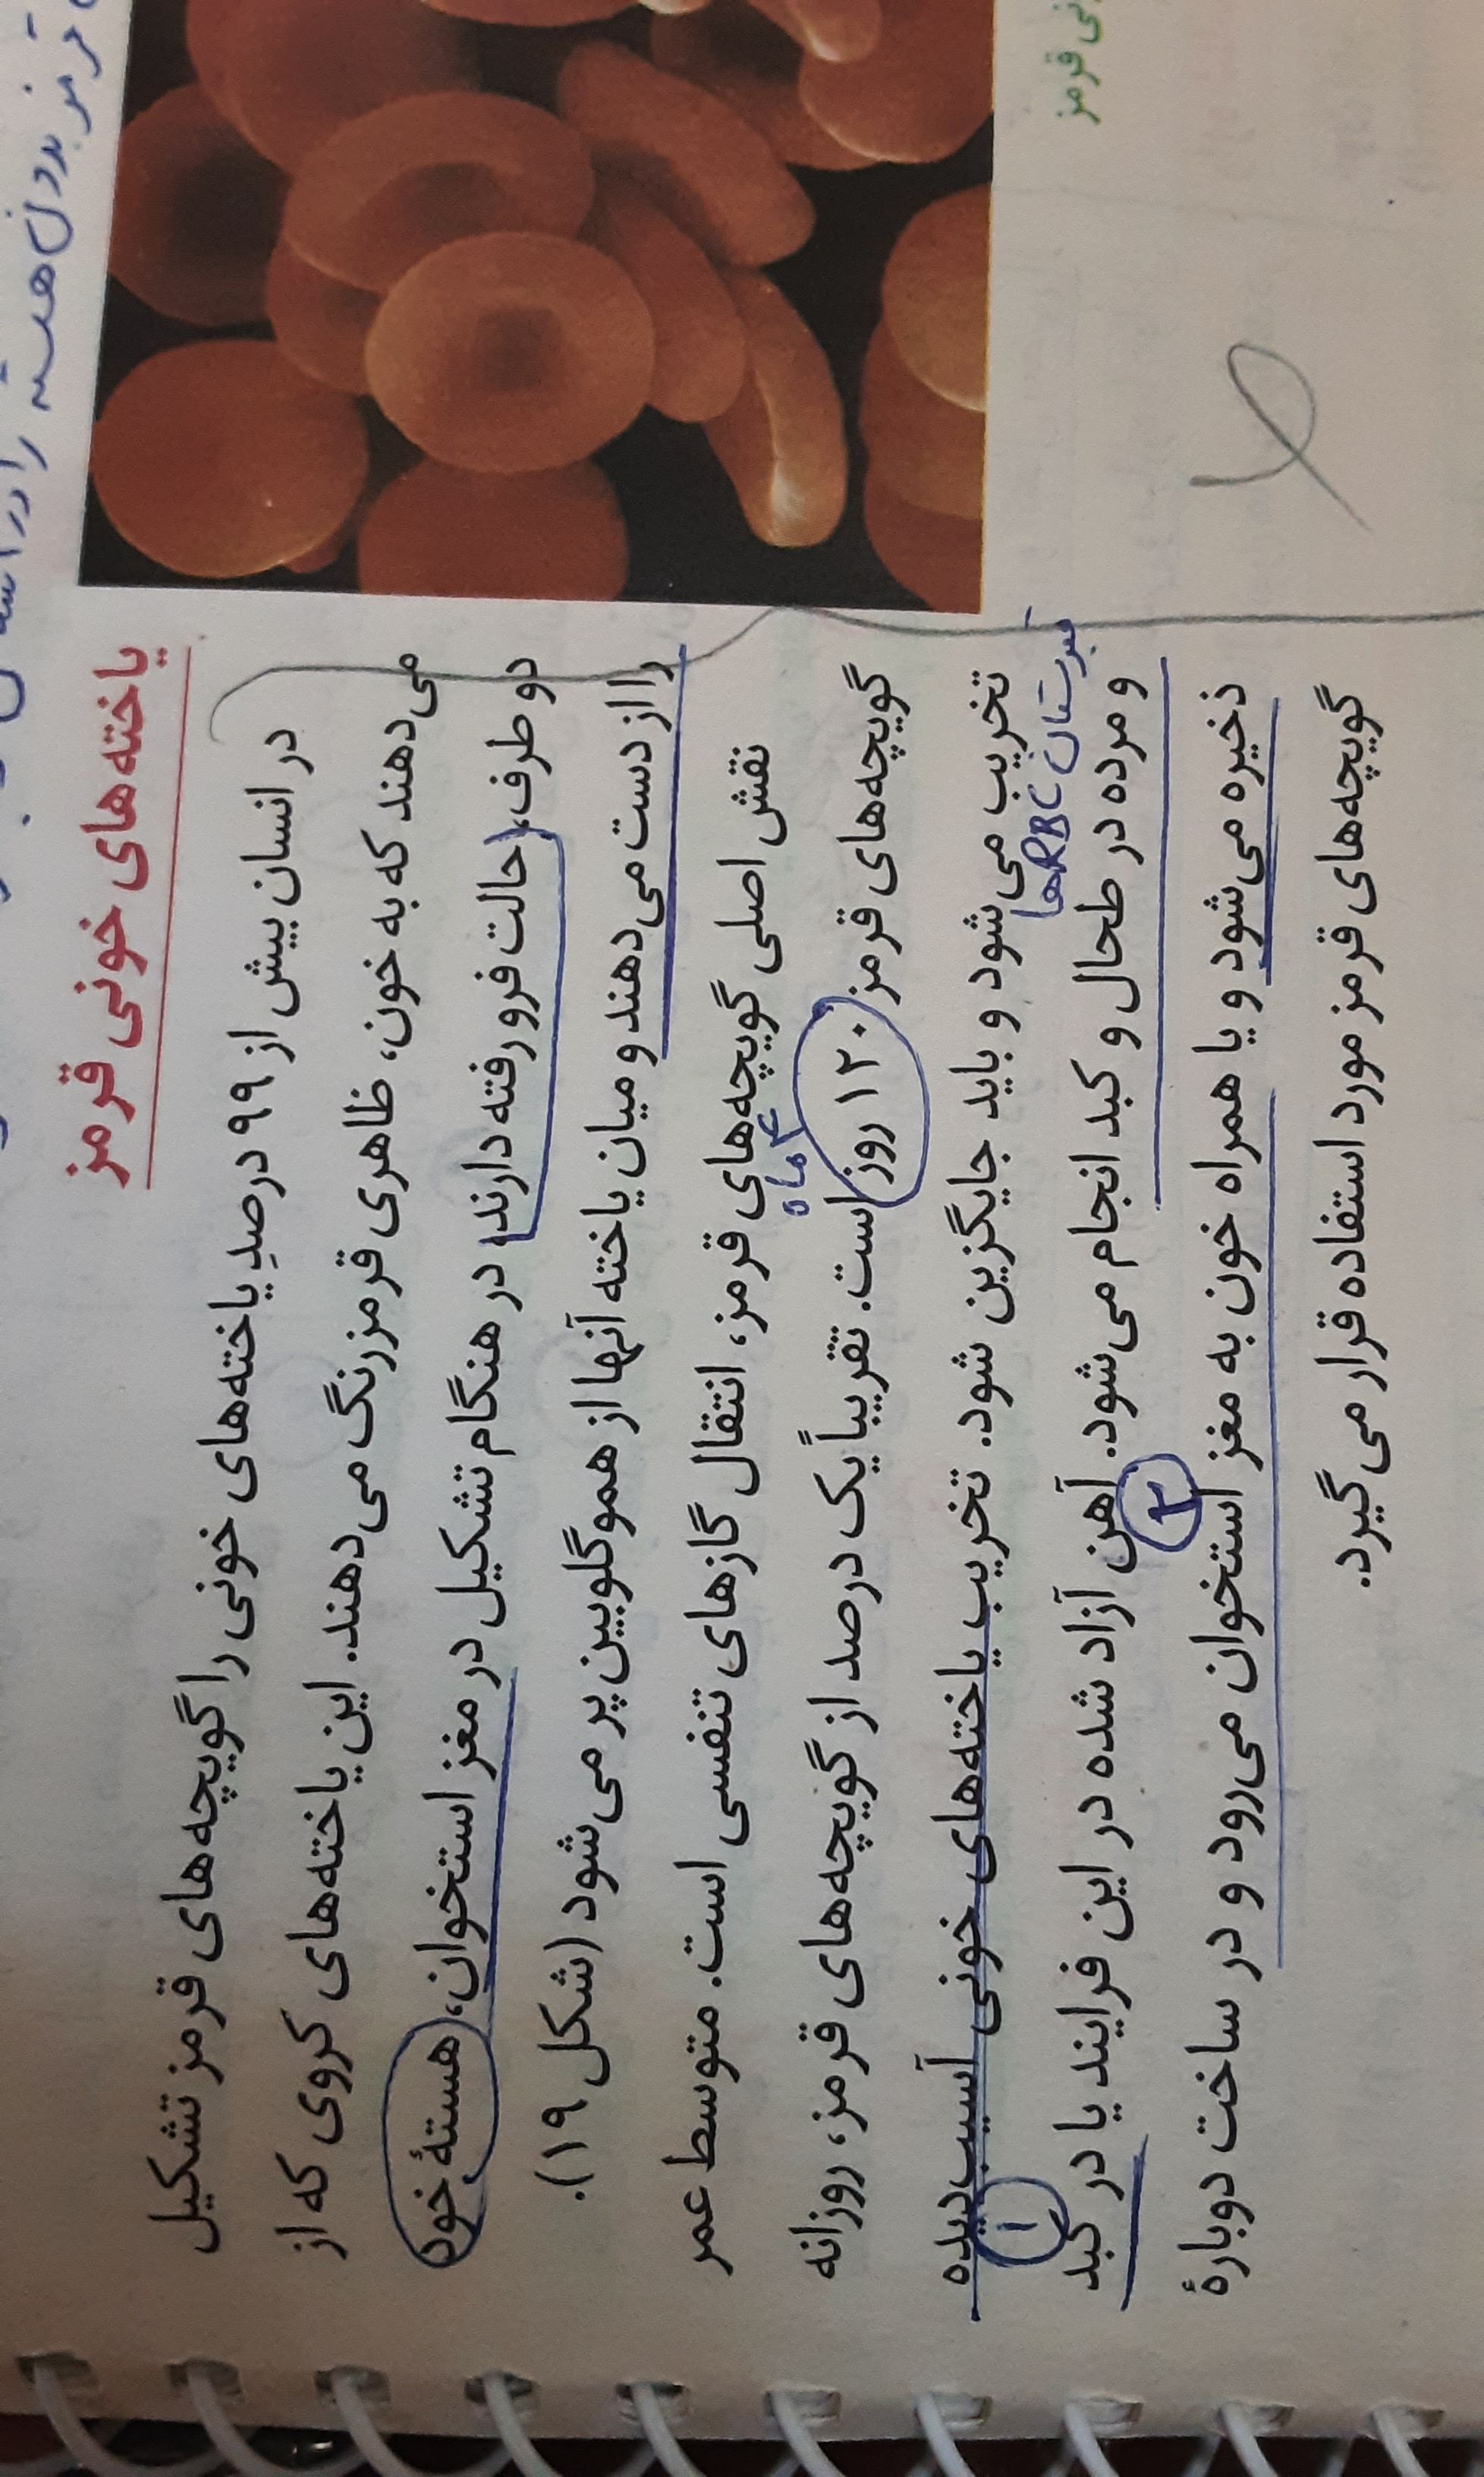 قرمز بدون هسته را در
یاخته‌های خونی قرمز
در انسان بیش از ۹۹ درصدِ یاخته‌های خونی را گویچه‌های قرمز تشکیل
می‌دهند که به خون، ظاهری قرمزرنگ می‌دهند. این یاخته‌های کروی که از
دو طرف، حالت فرورفته دارند، در هنگام تشکیل در مغز استخوان، هستهٔ خود
را از دست می‌دهند و میان یاخته آنها از هموگلوبین پر می‌شود (شکل ۱۹).
نقش اصلی گویچه‌های قرمز، انتقال گازهای تنفسی است. متوسط عمر
۴ ماه
گویچه‌های قرمز ۱۲۰ روز است. تقریباً یک درصد از گویچه‌های قرمز، روزانه
تخریب می‌شود و باید جایگزین شود. تخریب یاخته‌های خونی آسیب‌دیده
قبرستان RBCها
۱
و مرده در طحال و کبد انجام می‌شود. آهن آزاد شده در این فرایند یا در کبد
۲
ذخیره می‌شود و یا همراه خون به مغز استخوان می‌رود و در ساخت دوبارهٔ
گویچه‌های قرمز مورد استفاده قرار می‌گیرد.
قرمز